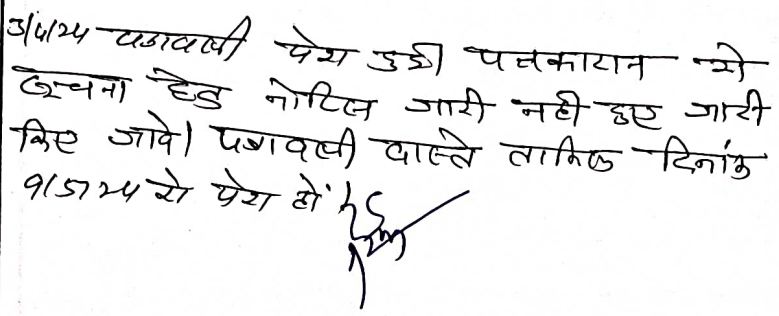 3/4/24 पत्रावली पेश हुई पक्षकारान को
सूचना हेतु नोटिस जारी नही हुए जारी
किए जावे। पत्रावली वास्ते तामिल दिनांक
9/5/24 को पेश हो।